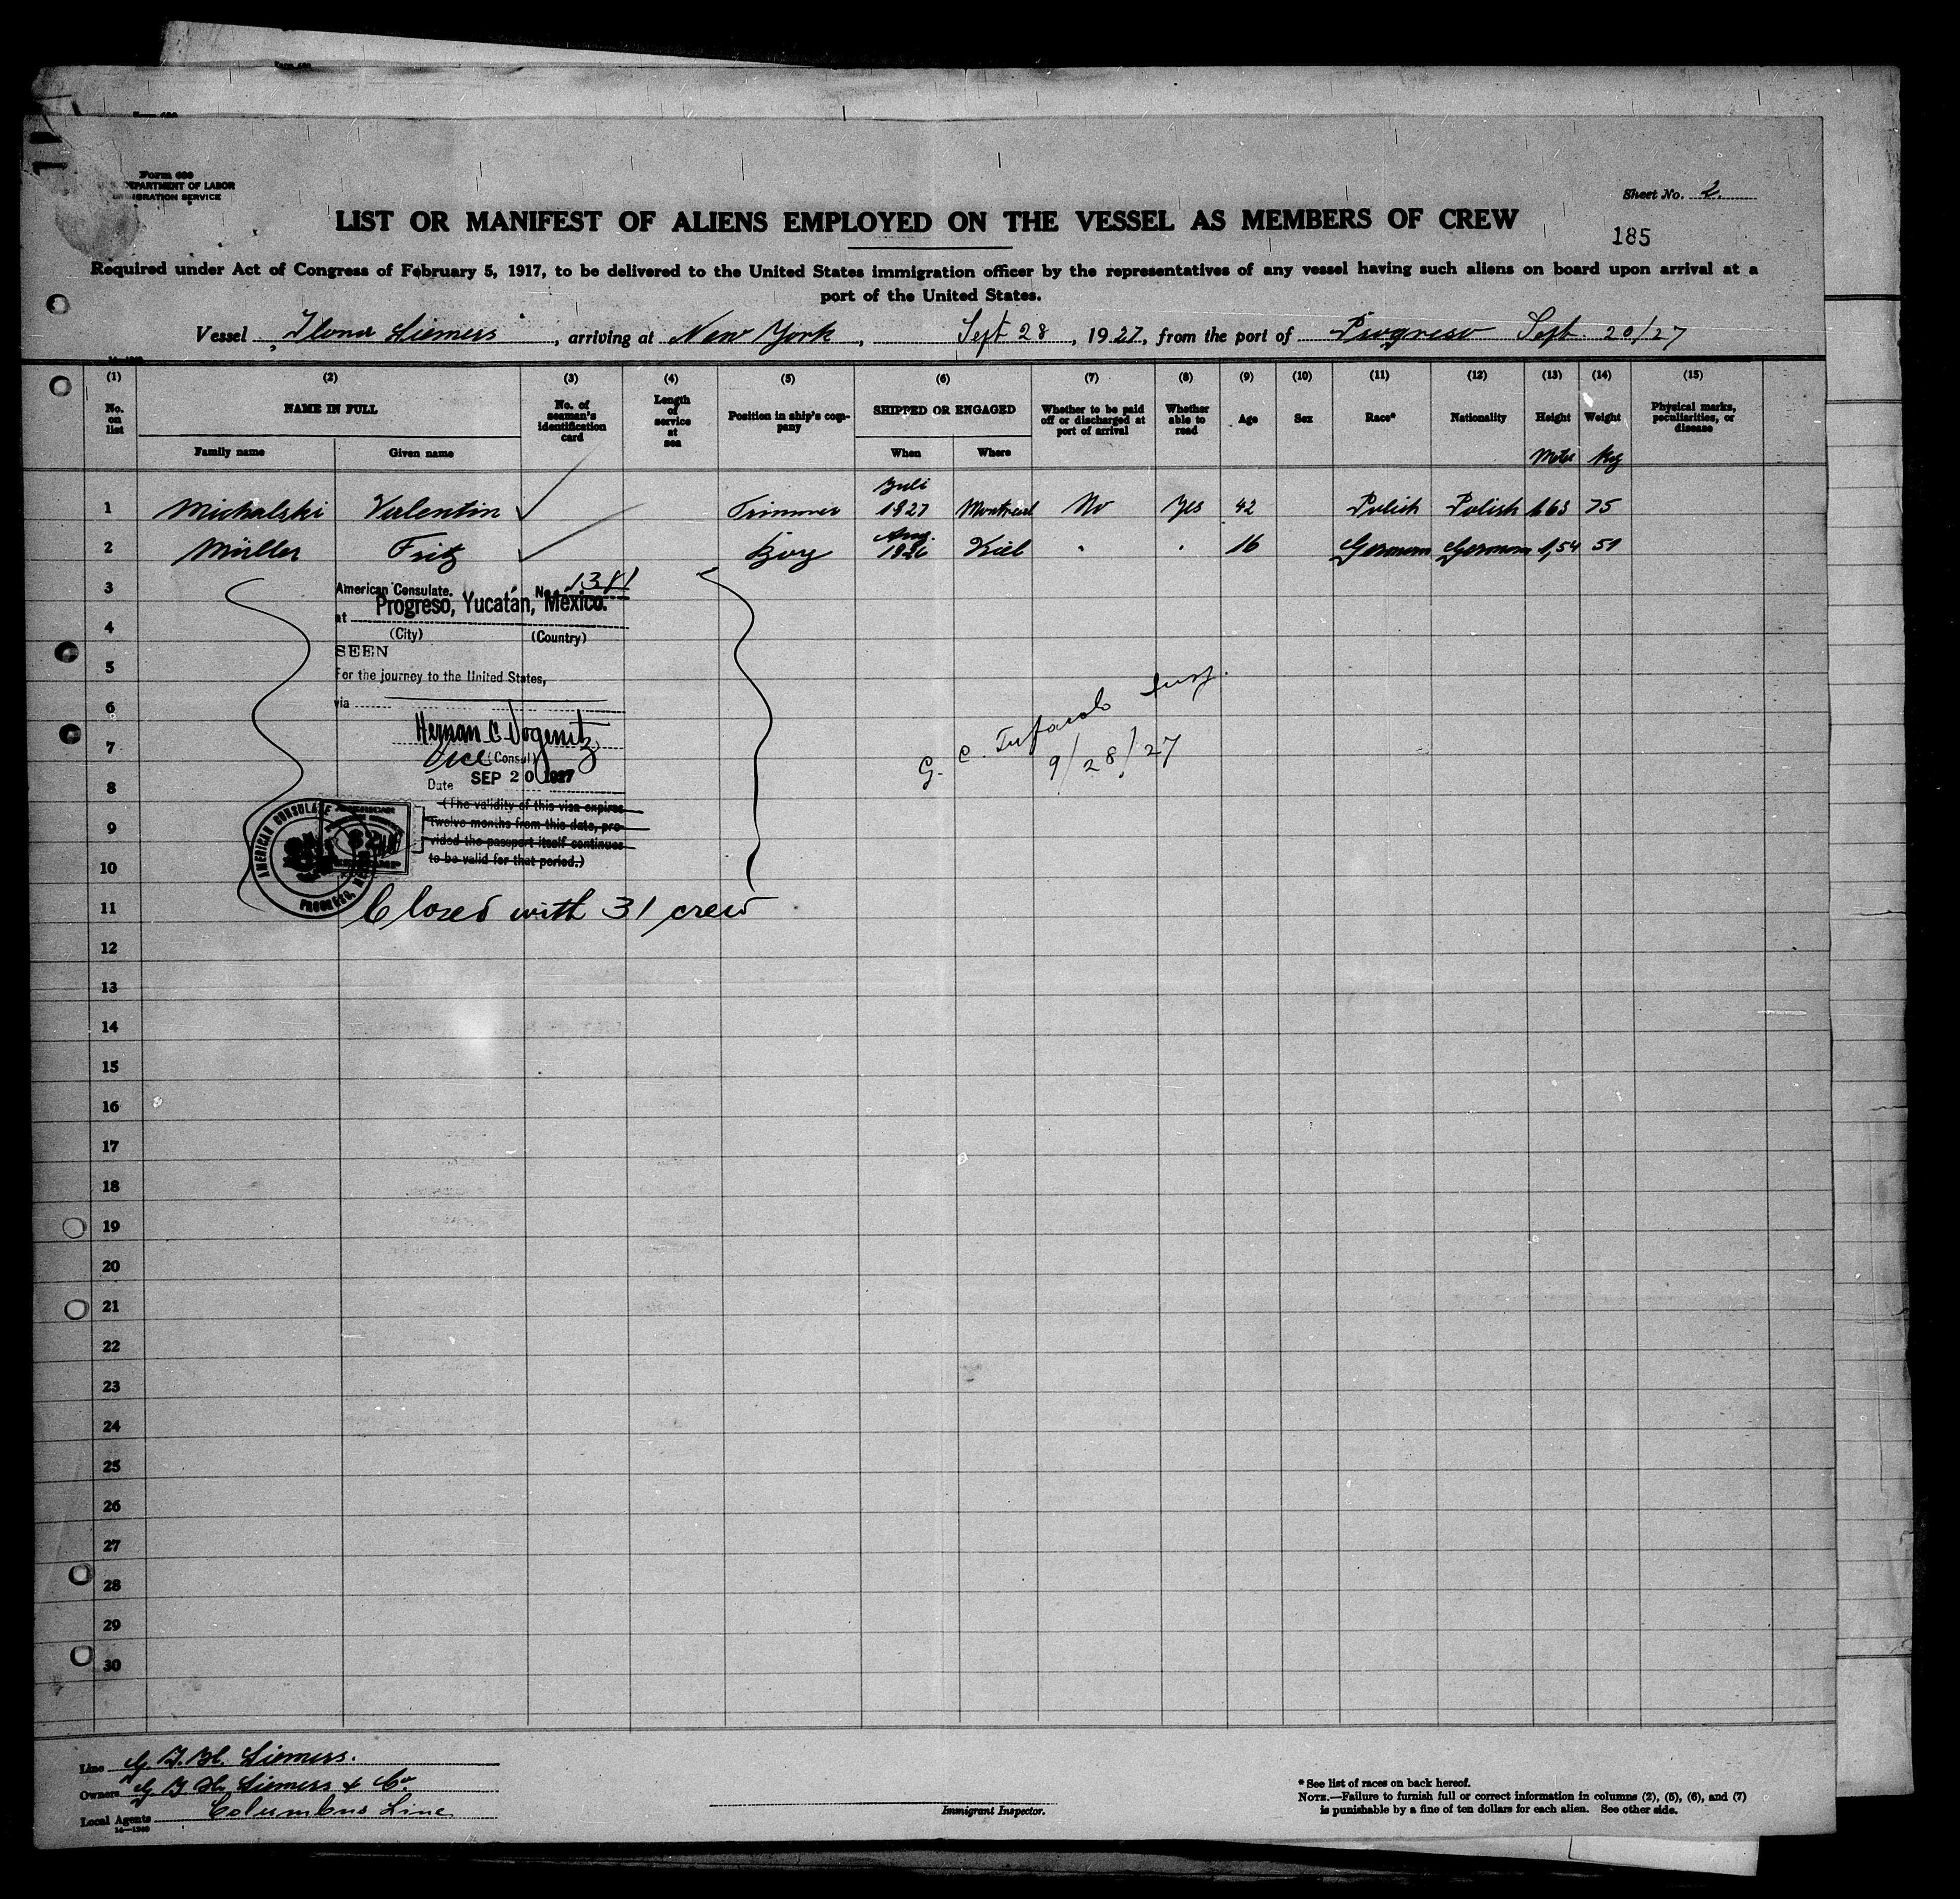 Form 680
DEPARTMENT OF LABOR
IMMIGRATION SERVICE
Sheet No. 2.
LIST OR MANIFEST OF ALIENS EMPLOYED ON THE VESSEL AS MEMBERS OF CREW
185
Required under Act of Congress of February 5, 1917, to be delivered to the United States immigration officer by the representatives of any vessel having such aliens on board upon arrival at a
port of the United States.
Vessel Ilona Siemers, arriving at New York, Sept 28, 1927, from the port of Progreso Sept. 20/27
(1) (2) (3) (4) (5) (6) (7) (8) (9) (10) (11) (12) (13) (14) (15)
No. on list NAME IN FULL No. of seaman's identification card Length of service at sea Position in ship's company SHIPPED OR ENGAGED Whether to be paid off or discharged at port of arrival Whether able to read Age Sex Race* Nationality Height Weight Physical marks, peculiarities, or disease
Family name Given name When Where Meter Kg
1 Michalski Valentin Trimmer Juli 1927 Montreal No Yes 42 Polish Polish 1,63 75
2 Müller Fritz Boy Aug. 1926 Kiel " " 16 German German 1,54 51
3
American Consulate. No. 1381
at Progreso, Yucatán, Mexico.
4
(City) (Country)
SEEN
5
For the journey to the United States,
6
via
7
Vice (Consul)
G. C. Insp.
9/28/27
8
Date SEP 20 1927
(The validity of this visa expires
9
Twelve months from this date, pro-
vided the passport itself continues
10
to be valid for that period.)
AMERICAN CONSULATE
PROGRESO, MEX
11
Closed with 31 crew
12
13
14
15
16
17
18
19
20
21
22
23
24
25
26
27
28
29
30
Line G. J. H. Siemers.
Owners G. J. H. Siemers & Co.
Local Agents Columbus Line
14—1240
Immigrant Inspector.
* See list of races on back hereof.
NOTE.—Failure to furnish full or correct information in columns (2), (5), (6), and (7)
is punishable by a fine of ten dollars for each alien. See other side.